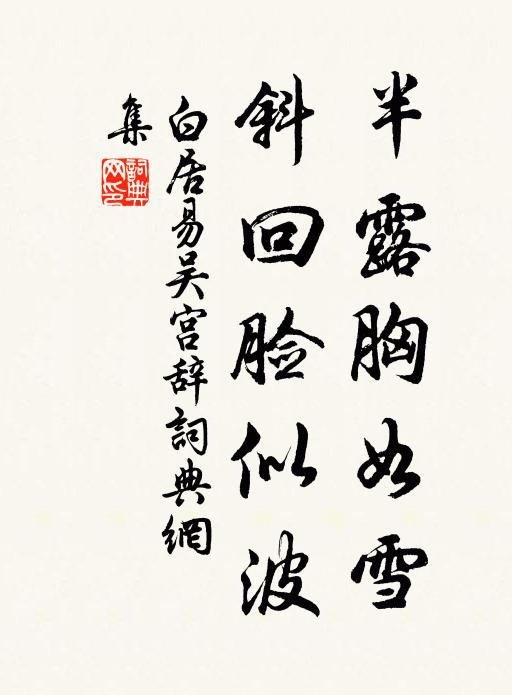 半露胸如雪
斜回脸似波
白居易吴宫辞詞典網
集
詞典
网印